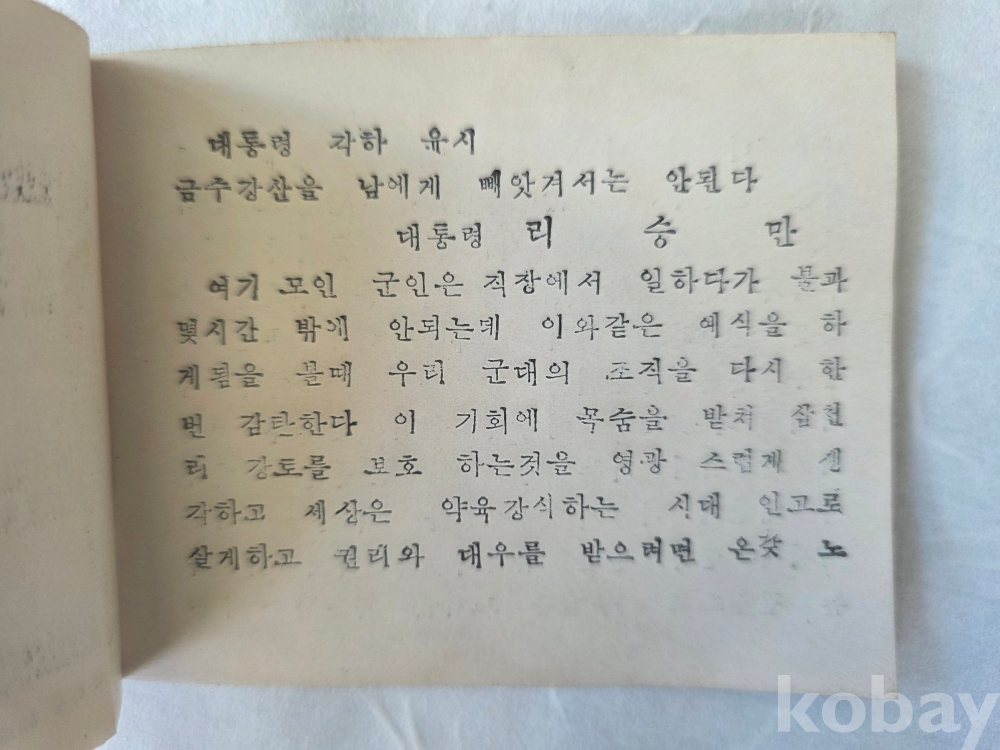 대통령 각하 유시
금수강산을 남에게 빼앗겨서는 안된다
대통령 리 승 만
여기 모인 군인은 직장에서 일하다가 불과
몇시간 밖에 안되는데 이와같은 예식을 하
게됨을 볼때 우리 군대의 조직을 다시 한
번 감탄한다 이 기회에 목숨을 받처 삼천
리 강토를 보호 하는것을 영광 스럽게 생
각하고 세상은 약육강식하는 시대 인고로
살게하고 권리와 대우를 받으려면 온갖 노
kobay